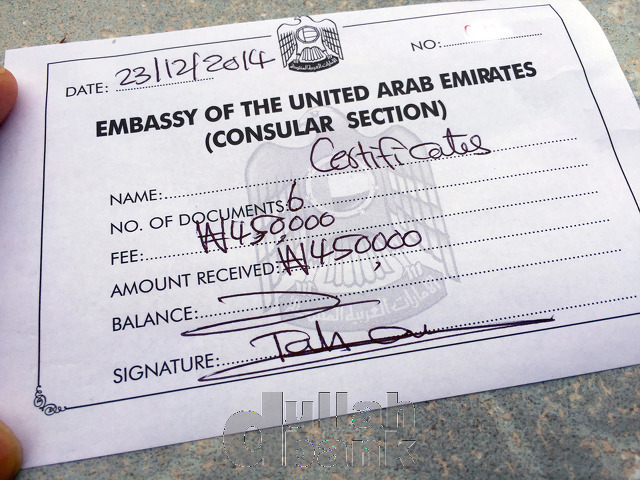 DATE: 23/12/2014
NO:
EMBASSY OF THE UNITED ARAB EMIRATES
(CONSULAR SECTION)
NAME: Certificates
NO. OF DOCUMENTS: 6
FEE: ₦450,000
AMOUNT RECEIVED: ₦450,000
BALANCE:
SIGNATURE:
dullah
bank